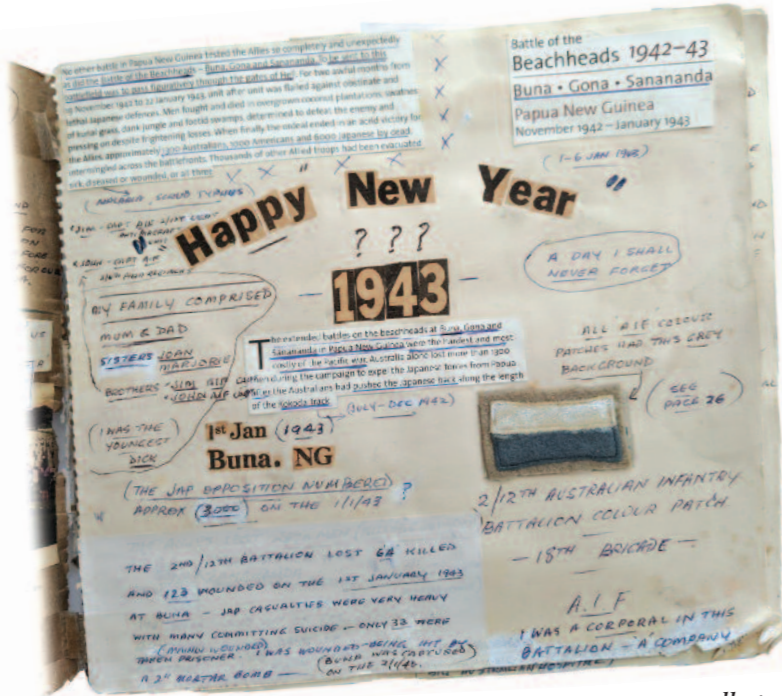 No other battle in Papua New Guinea tested the Allies so completely and unexpectedly
as did the Battle of the Beachheads – Buna, Gona and Sanananda. To be sent to this
battlefield was to pass figuratively through the gates of Hell. For two awful months from
November 1942 to 22 January 1943, unit after unit was flung against obstinate and
lethal Japanese defences. Men fought and died in overgrown coconut plantations, swathes
of kunai grass, dank jungle and foetid swamps, determined to defeat the enemy and
pressing on despite frightening losses. When finally the ordeal ended in an acrid victory for
the Allies, approximately Australians, Americans and 6000 Japanese lay dead,
intermingled across the battlefronts. Thousands of other Allied troops had been evacuated
sick, diseased or wounded, or all three.
(MALARIA, SCRUB TYPHUS)
Battle of the
Beachheads 1942–43
Buna • Gona • Sanananda
Papua New Guinea
November 1942 – January 1943
"Happy New Year"
? ? ?
– 1943 –
A DAY I SHALL
NEVER FORGET
MY FAMILY COMPRISED
MUM & DAD
SISTERS JOAN
MARJORIE
BROTHERS JIM AIF
JOHN AIF
(I WAS THE
YOUNGEST
DICK
The extended battles on the beachheads at Buna, Gona and
Sanananda in Papua New Guinea were the hardest and most
costly of the Pacific war. Australia alone lost more than 1300
during the campaign to expel the Japanese forces from Papua
after the Australians had pushed the Japanese back along the length
of the Kokoda track.
(JULY-DEC 1942)
1st Jan (1943)
Buna. NG
ALL AIF COLOUR
PATCHES HAD THIS GREY
BACKGROUND
(SEE
PAGE 26)
(THE JAP OPPOSITION NUMBERED
APPROX (3000) ON THE 1/1/43) ?
2/12TH AUSTRALIAN INFANTRY
BATTALION COLOUR PATCH
– 18TH BRIGADE –
A.I.F
I WAS A CORPORAL IN THIS
BATTALION – 'A' COMPANY
THE 2ND/12TH BATTALION LOST 64 KILLED
AND 123 WOUNDED ON THE 1ST JANUARY 1943
AT BUNA – JAP CASUALTIES WERE VERY HEAVY
WITH MANY COMMITTING SUICIDE – ONLY WERE
TAKEN PRISONER. I WAS WOUNDED – BEING HIT BY
A 2" MORTAR BOMB – (BUNA WAS CAPTURED
ON THE 2/1/43.